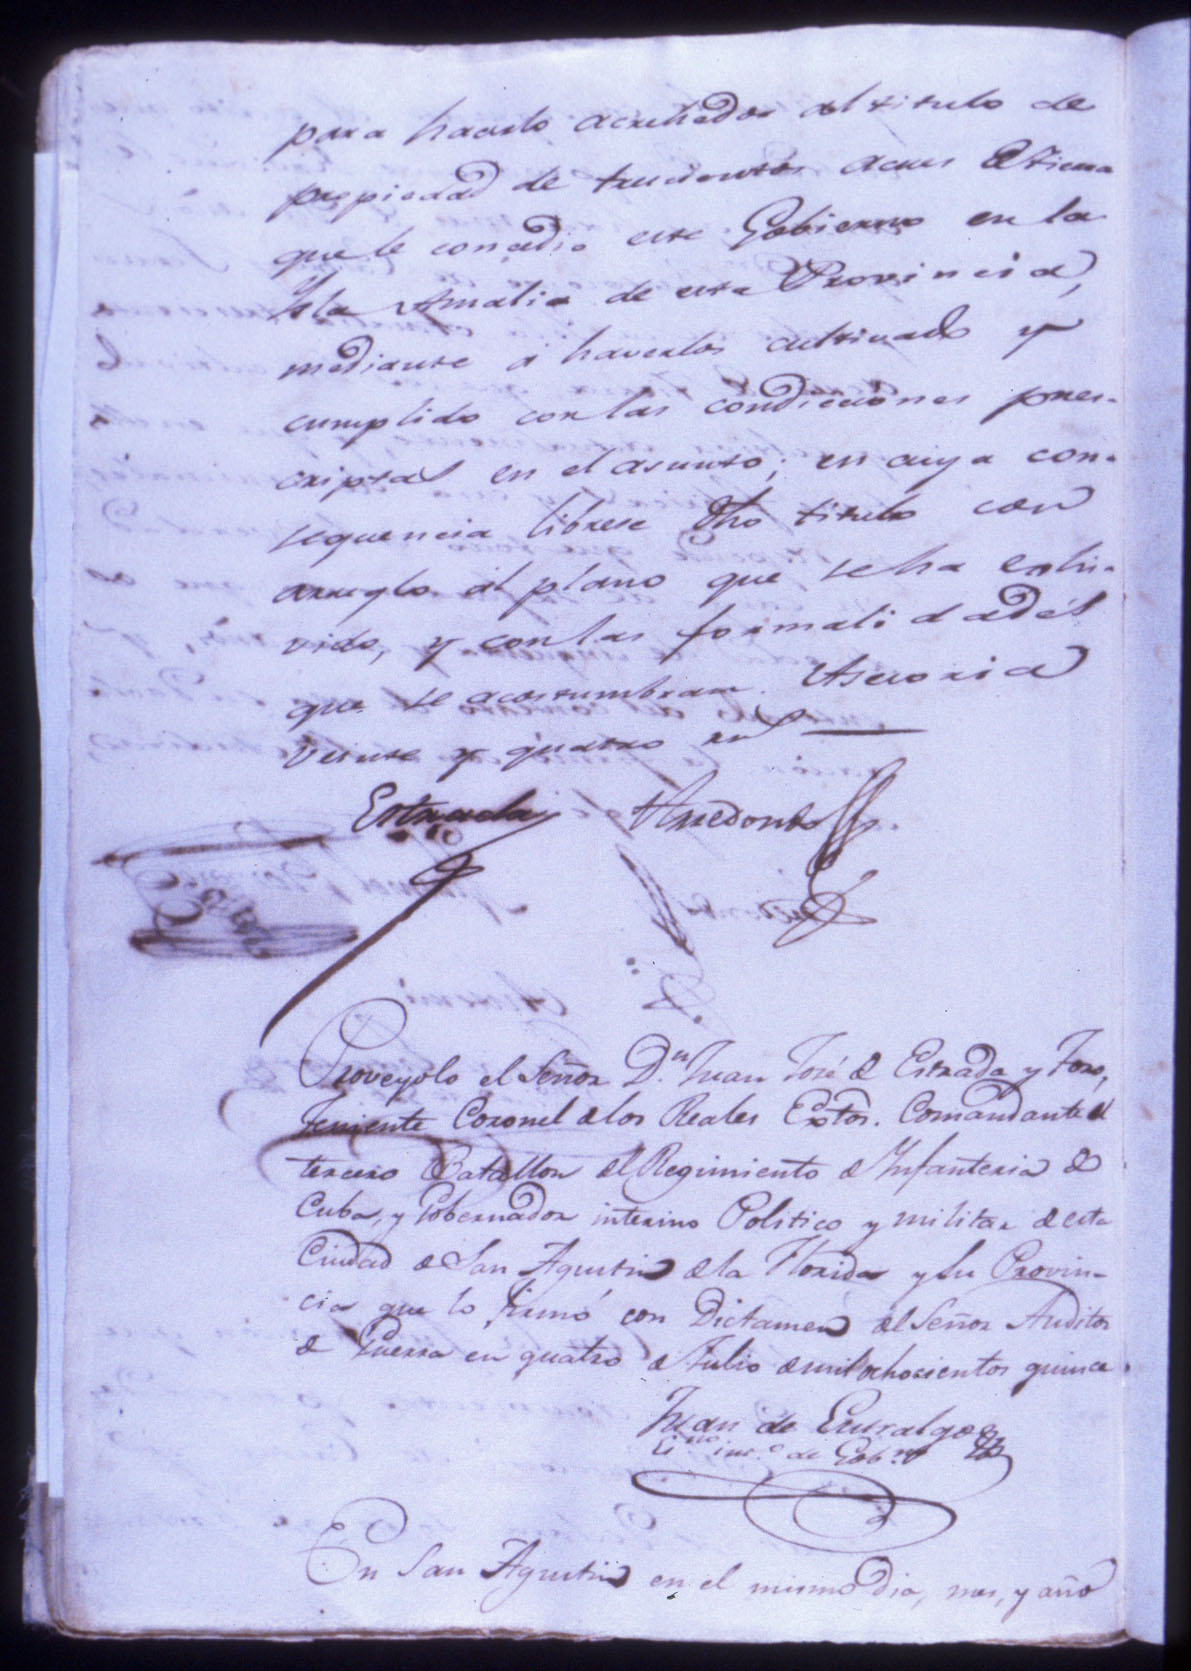 para hacerlo acrehedor al titulo de
propiedad de trecientos acres de tierra
que le concedio este Gobierno en la
Ysla Amalia de esta Provincia,
mediante á haverlos cultivado y
cumplido con las condiciones pres-
criptas en el asunto; en cuya con-
sequencia librese dho titulo con
arreglo al plano que se ha exhi-
vido, y con las formalidades
que se acostumbran. Asesoria
veinte y quatro
Estrada Arredondo
Proveyolo el Señor D.n Juan José de Estrada y Toro,
Teniente Coronel de los Reales Extos. Comandante del
tercero Batallon del Regimiento de Ynfanteria de
Cuba, y Gobernador interino Politico y militar de esta
Ciudad de San Agustin de la Florida y su Provin-
cia que lo firmó con Dictamen del Señor Auditor
de Guerra en quatro de Julio de mil ochocientos quince.
Juan de Entralgo
int.o de Gob.no
En San Agustin en el mismo dia, mes, y año